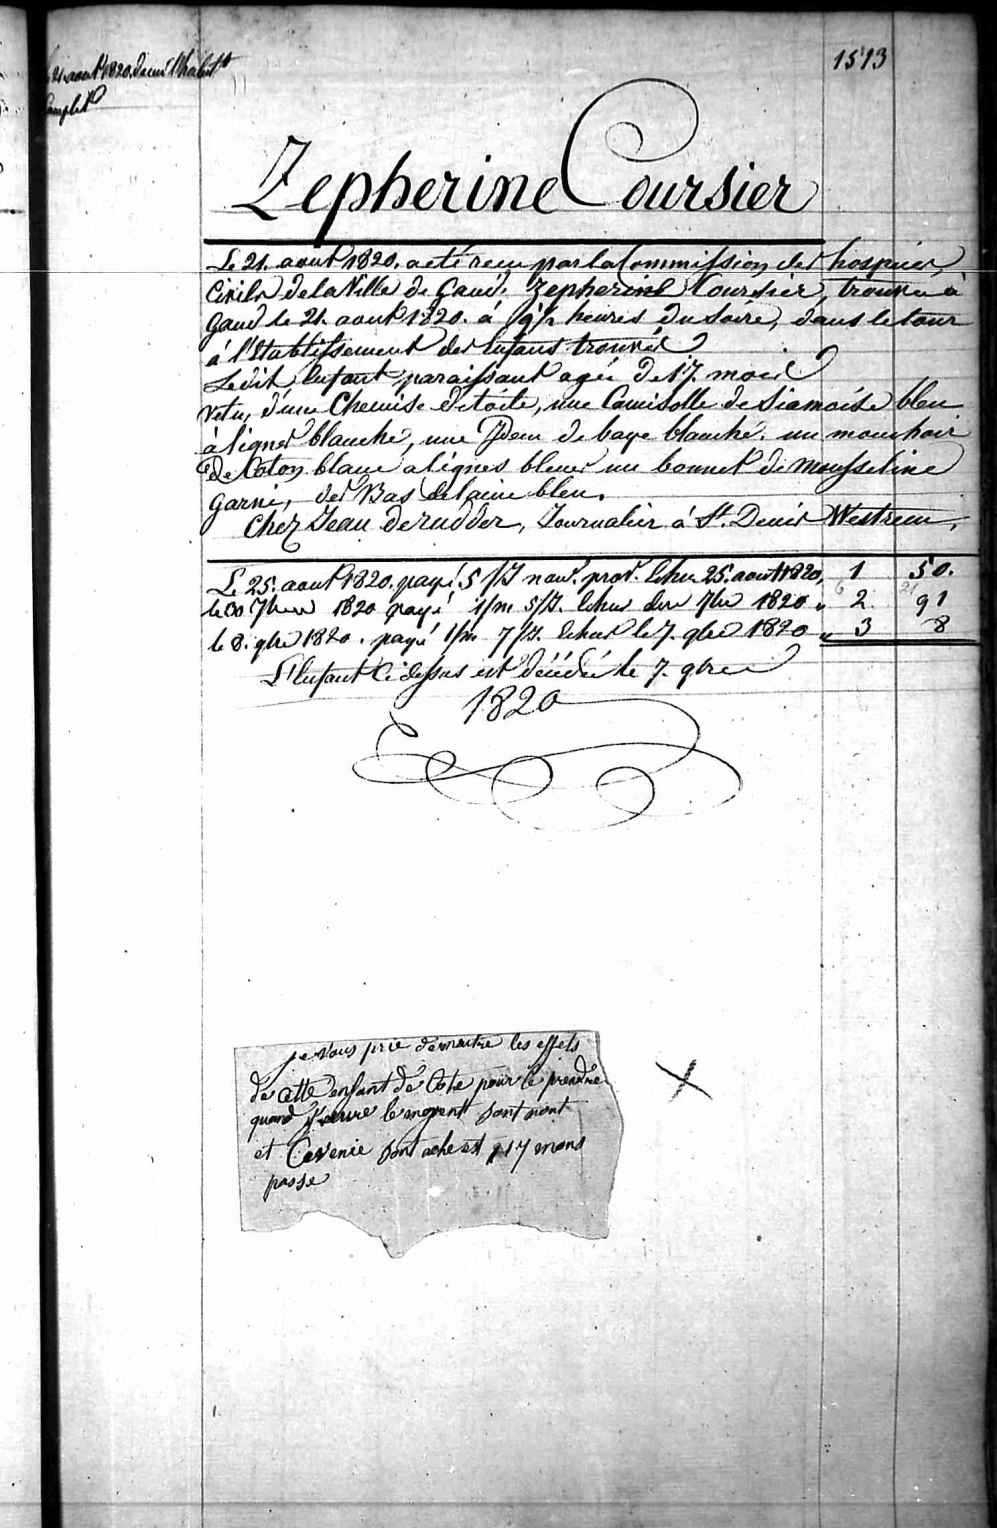 21. aout 1820. demi l'habill.t
Complet
1513
Zepherine Coursier
Le 21. aout 1820. a eté reçu par la Commission des hospices
Civils de la Ville de Gand, Zepherine Coursier, trouvée à
Gand le 21. aout 1820. à 9 1/2 heures du Soire, dans le tour
à l'Etablissement des Enfans trouvés
Le dit Enfant paraissant agée de 17. mois
vetu, d'une Chemise de toile, une Camisolle de Siamoise bleu
à lignes blanche, une Idem de baye blanche. un mouchoir
de Coton blanc à lignes bleues un bonnet de mousseline
garni, des Bas de laine bleu.
Chez Jean Derudder, Journalier à St. Denis Westrem,
Le 25. aout 1820. payé 5/J nour. prov. Echu 25. aout 1820, 1 50.
le 30 7bre 1820 payé 1/m 5/J. Echus dure 7bre 1820 " 2. 91
le 8. 9bre 1820. payé 1/m 7/J. Echus le 7. 9bre 1820 " 3 8
L'Enfant Ci dessus est décédé le 7. 9bre
1820
je vous prie de maitre les effets
de cette enfant de Cote pour le prendre
quand j'orure le moyent sont nont
et Cevenie sont ache est 17 mons
passe